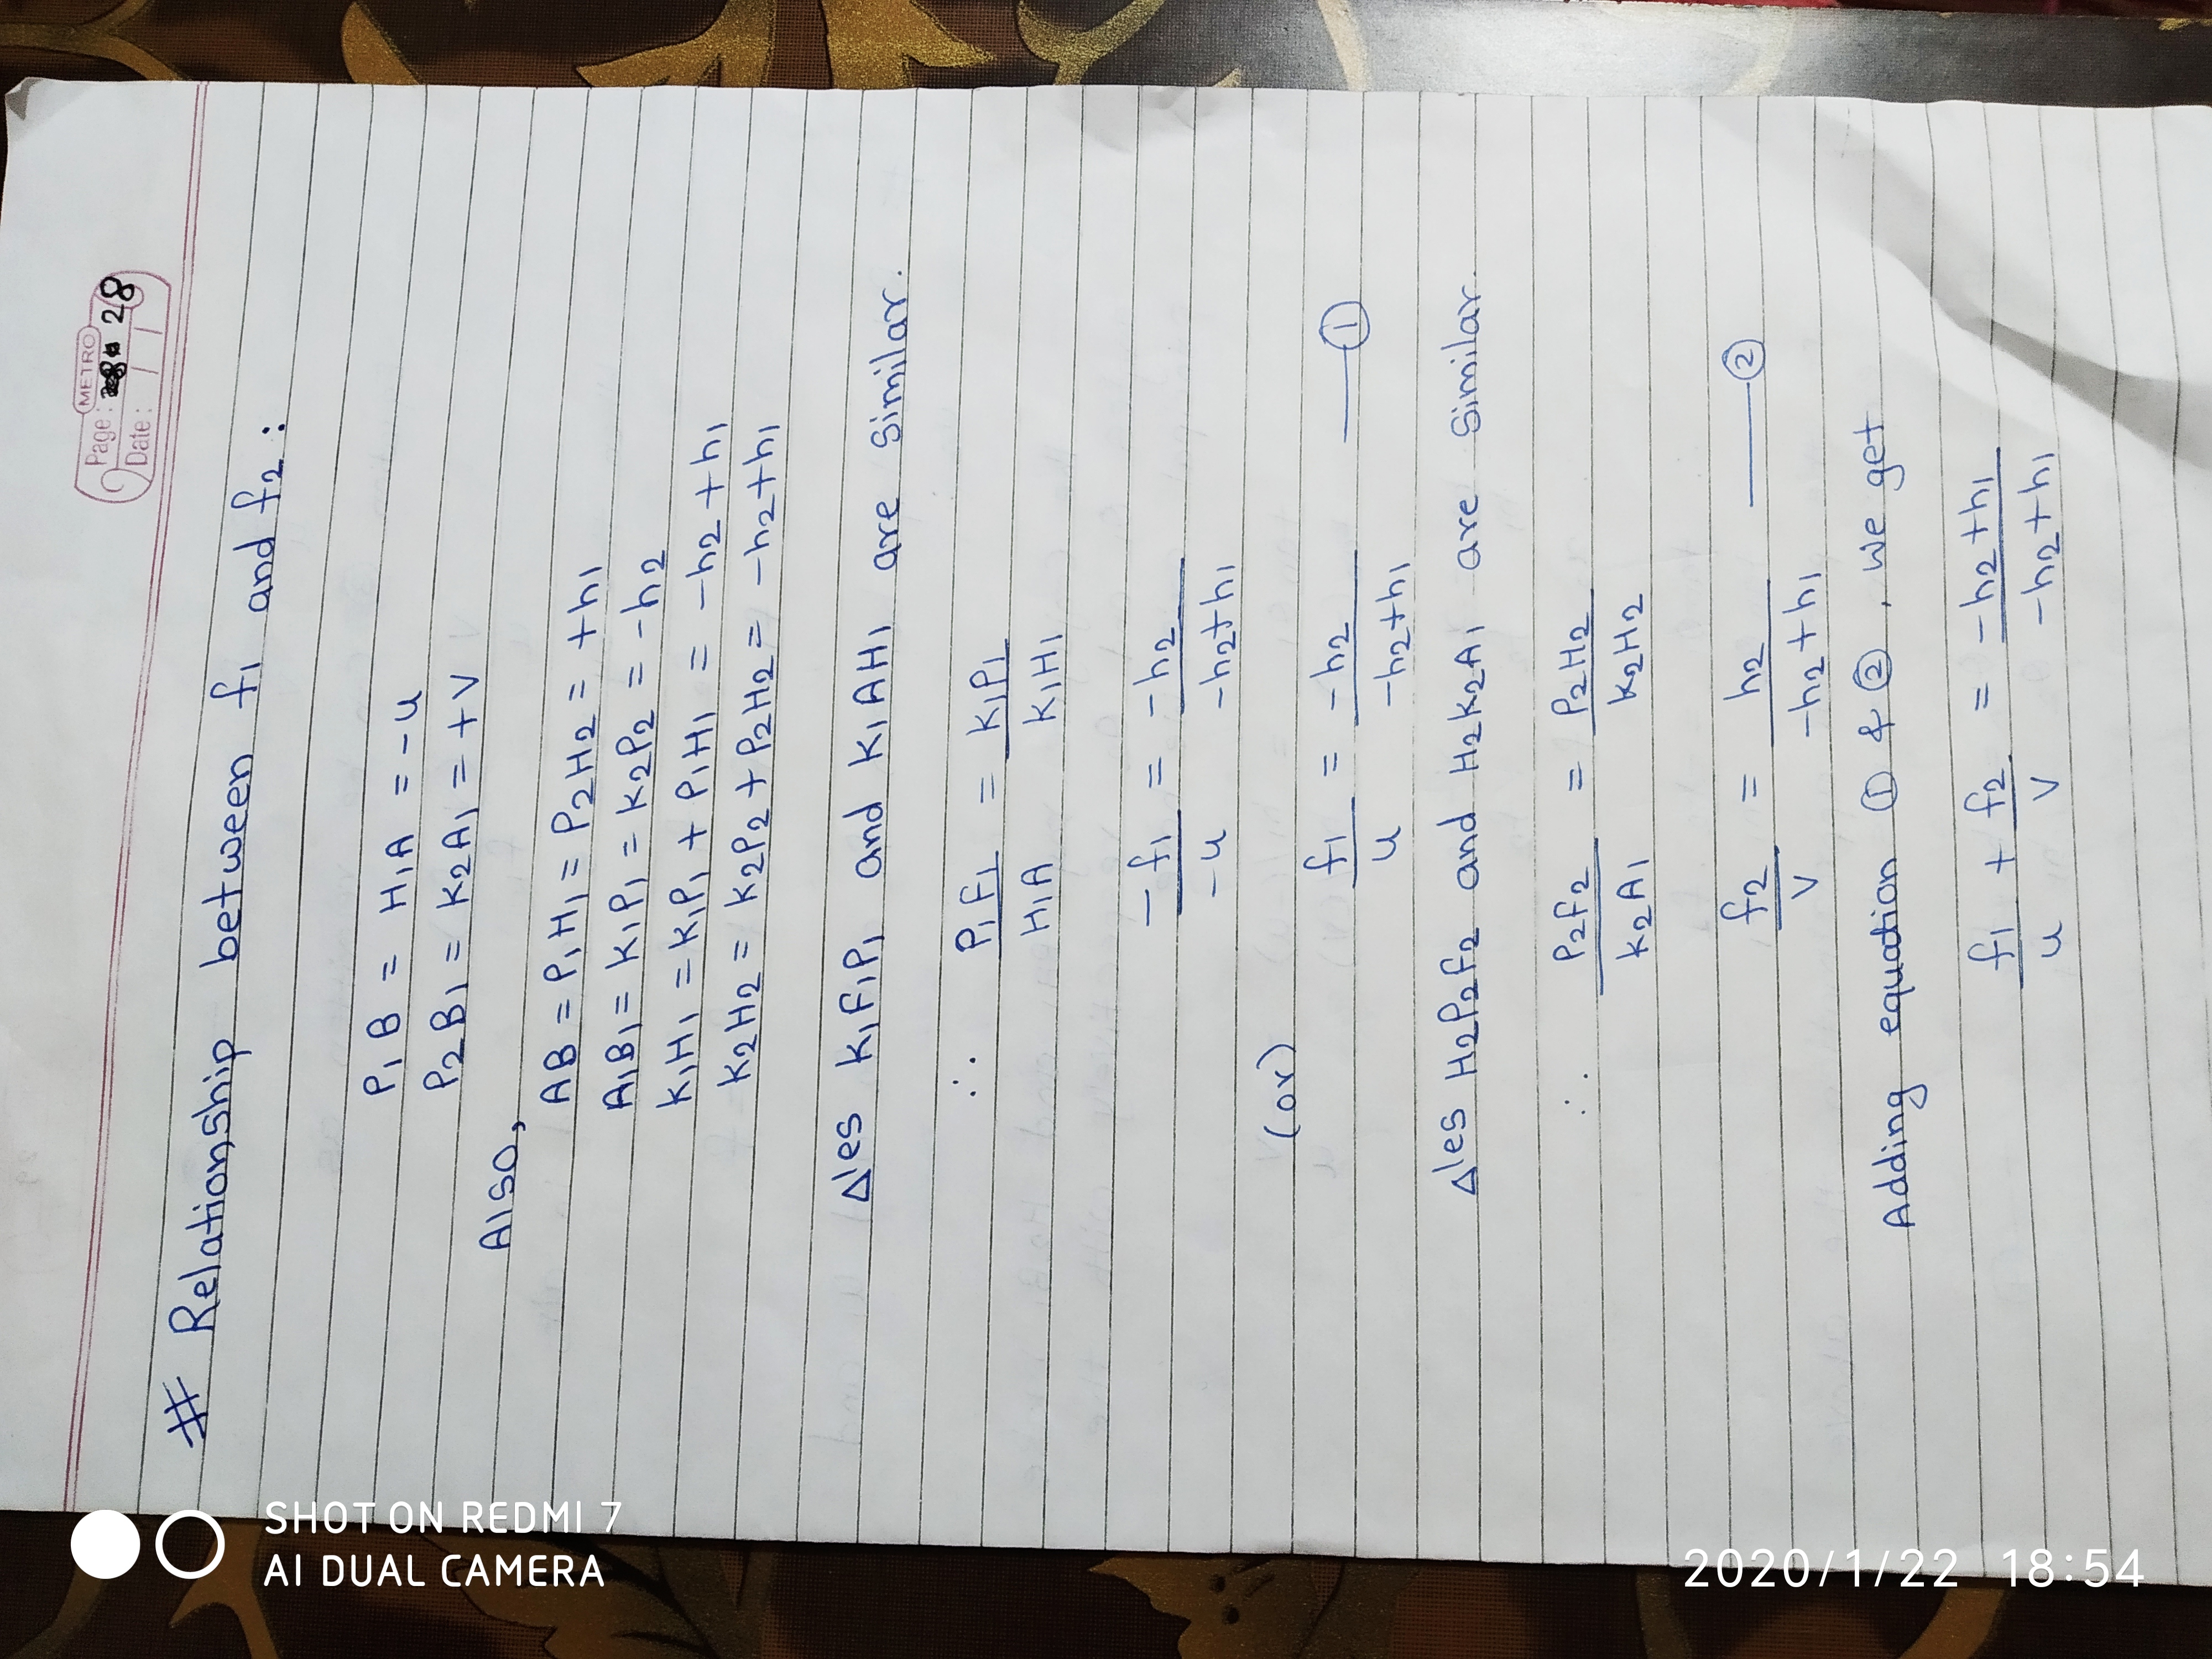 METRO
Page: 28
Date:
# Relationship between f1 and f2 :
P1B = H1A = -u
P2B1 = K2A1 = +v
Also,
AB = P1H1 = P2H2 = +h1
A1B1 = K1P1 = K2P2 = -h2
K1H1 = K1P1 + P1H1 = -h2 + h1
K2H2 = K2P2 + P2H2 = -h2 + h1
Δles K1F1P1 and K1AH1 are similar.
∴ P1F1/H1A = K1P1/K1H1
-f1/-u = -h2/-h2+h1
(or) f1/u = -h2/-h2+h1 —— ①
Δles H2P2f2 and H2K2A1 are similar.
∴ P2f2/K2A1 = P2H2/K2H2
f2/v = h2/-h2+h1 —— ②
Adding equation ① & ②, we get
f1/u + f2/v = -h2+h1/-h2+h1
SHOT ON REDMI 7
AI DUAL CAMERA
2020/1/22 18:54